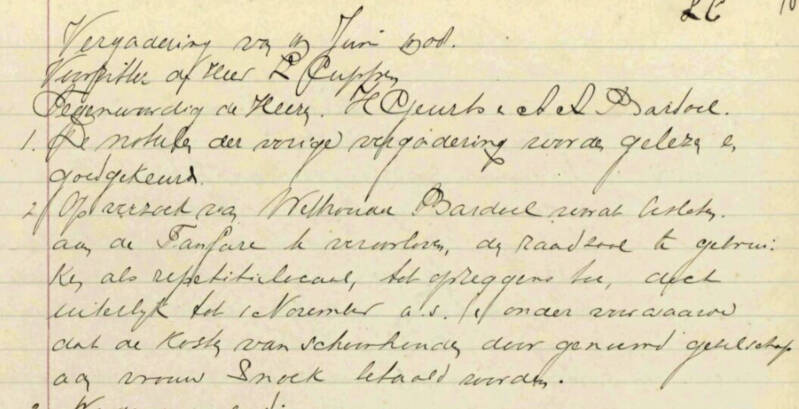 LC
Vergadering van Juni 1908.
Voorzitter de Heer L Cuppen
Tegenwoordig de Heeren. H Geurts & A A Bardoel.
1. De notulen der vorige vergadering worden gelezen en
goedgekeurd.
2 Op verzoek van Wethouder Bardoel wordt besloten.
aan de Fanfare te veroorloven, de raadzaal te gebrui:
ken als repetitielocaal, tot opzeggens toe, doch
uiterlijk tot 1 November a.s. & onder voorwaarde
dat de kosten van schoonhouden door genoemd gezelschap
aan vrouw Snoek betaald worden.